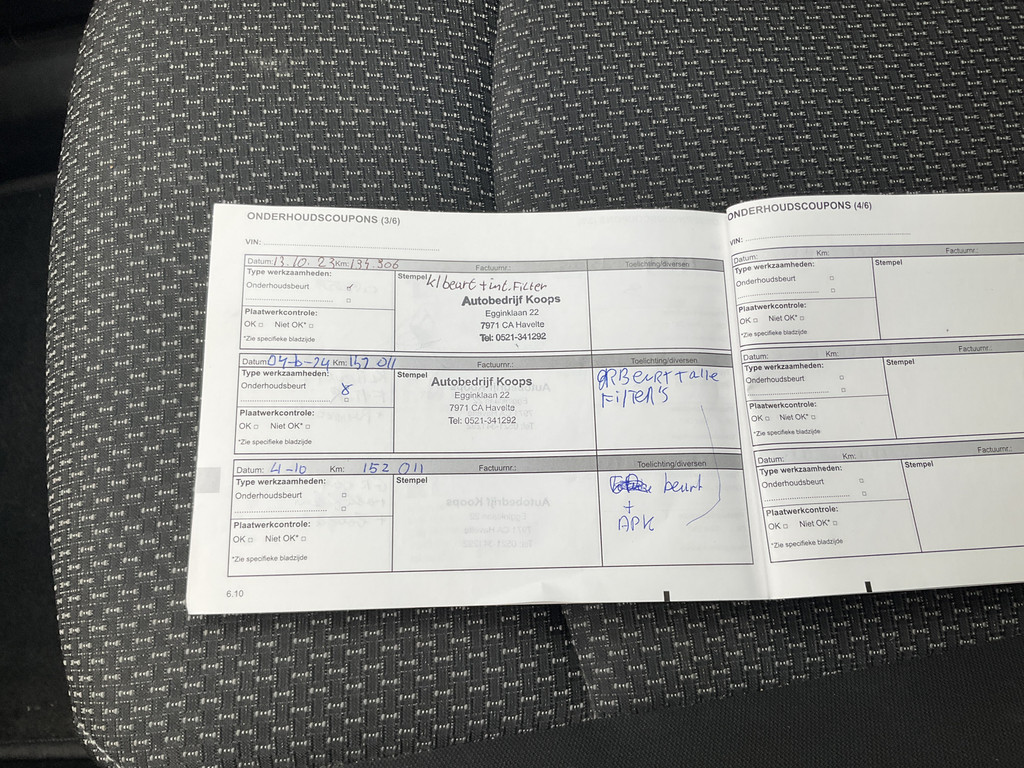 ONDERHOUDSCOUPONS (3/6)
VIN:
Datum: 13.10.23 Km: 134.306 Factuurnr.: Toelichting/diversen
Type werkzaamheden:
Onderhoudsbeurt
Stempel kl beurt + int. Filter
Autobedrijf Koops
Egginklaan 22
7971 CA Havelte
Tel: 0521-341292
Plaatwerkcontrole:
OK Niet OK*
*Zie specifieke bladzijde
Datum: Km: Factuurnr.: Toelichting/diversen
Type werkzaamheden:
Onderhoudsbeurt
Stempel
Autobedrijf Koops
Egginklaan 22
7971 CA Havelte
Tel: 0521-341292
GRBEURT + alle
FILTER'S
Plaatwerkcontrole:
OK Niet OK*
*Zie specifieke bladzijde
Datum: 4-10 Km: 152 011 Factuurnr.: Toelichting/diversen
Type werkzaamheden:
Onderhoudsbeurt
Stempel
beurt
+
APK
Plaatwerkcontrole:
OK Niet OK*
*Zie specifieke bladzijde
6.10
ONDERHOUDSCOUPONS (4/6)
VIN:
Datum: Km: Factuurnr.:
Type werkzaamheden:
Onderhoudsbeurt
Stempel
Plaatwerkcontrole:
OK Niet OK*
*Zie specifieke bladzijde
Datum: Km: Factuurnr.:
Type werkzaamheden:
Onderhoudsbeurt
Stempel
Plaatwerkcontrole:
OK Niet OK*
*Zie specifieke bladzijde
Datum: Km: Factuurnr.:
Type werkzaamheden:
Onderhoudsbeurt
Stempel
Plaatwerkcontrole:
OK Niet OK*
*Zie specifieke bladzijde